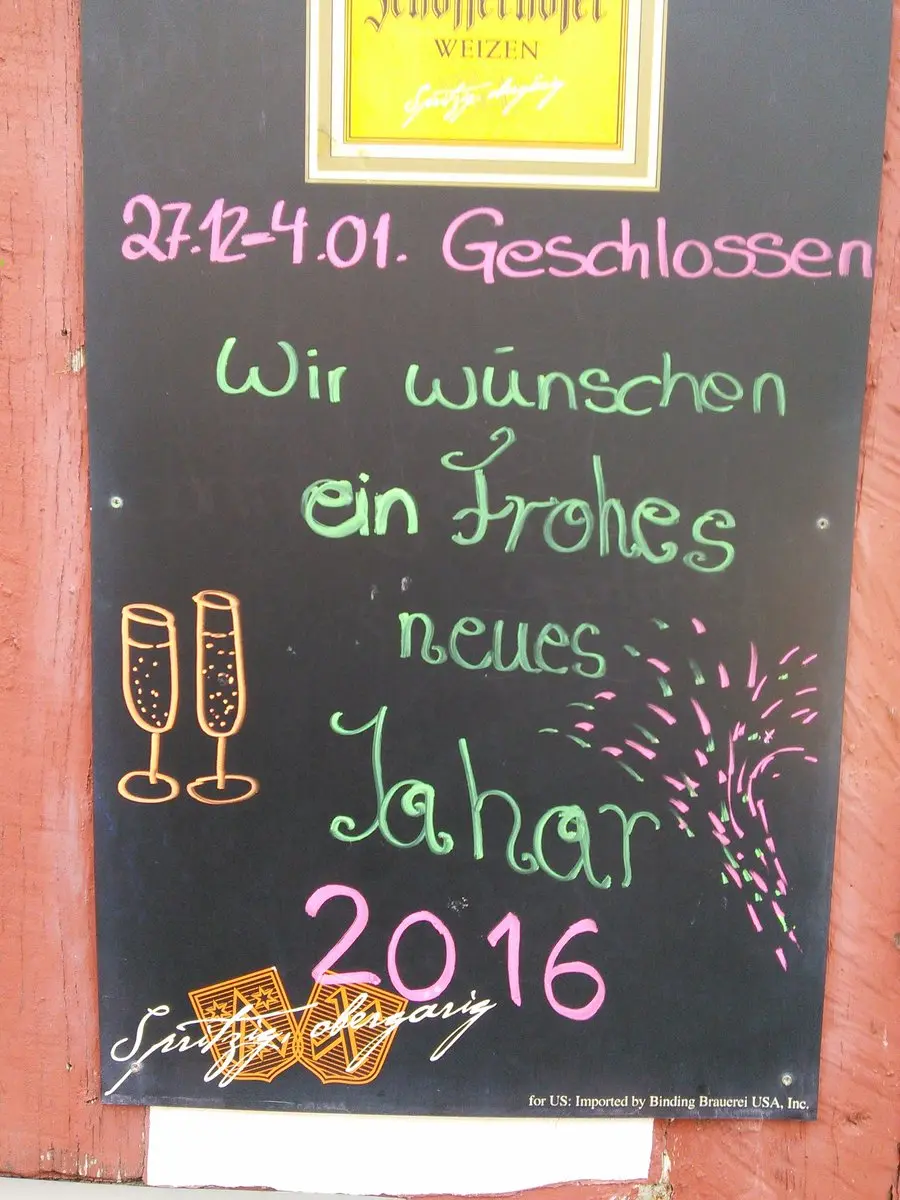 Schöfferhofer
WEIZEN
Spritzig, obergärig
27.12-4.01. Geschlossen
Wir wünschen
ein Frohes
neues
Jahar
2016
Spritzig, obergärig
for US: Imported by Binding Brauerei USA, Inc.